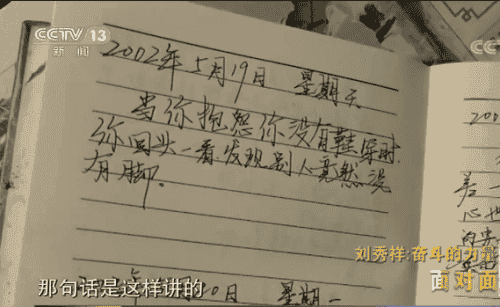 CCTV 13
新闻
CC
2002年5月19日 星期天
当你抱怨你没有鞋穿时,
你回头一看,发现别人竟然没
有脚.
刘秀祥:奋斗的力量
面对面
那句话是这样讲的
20日 星期一
200